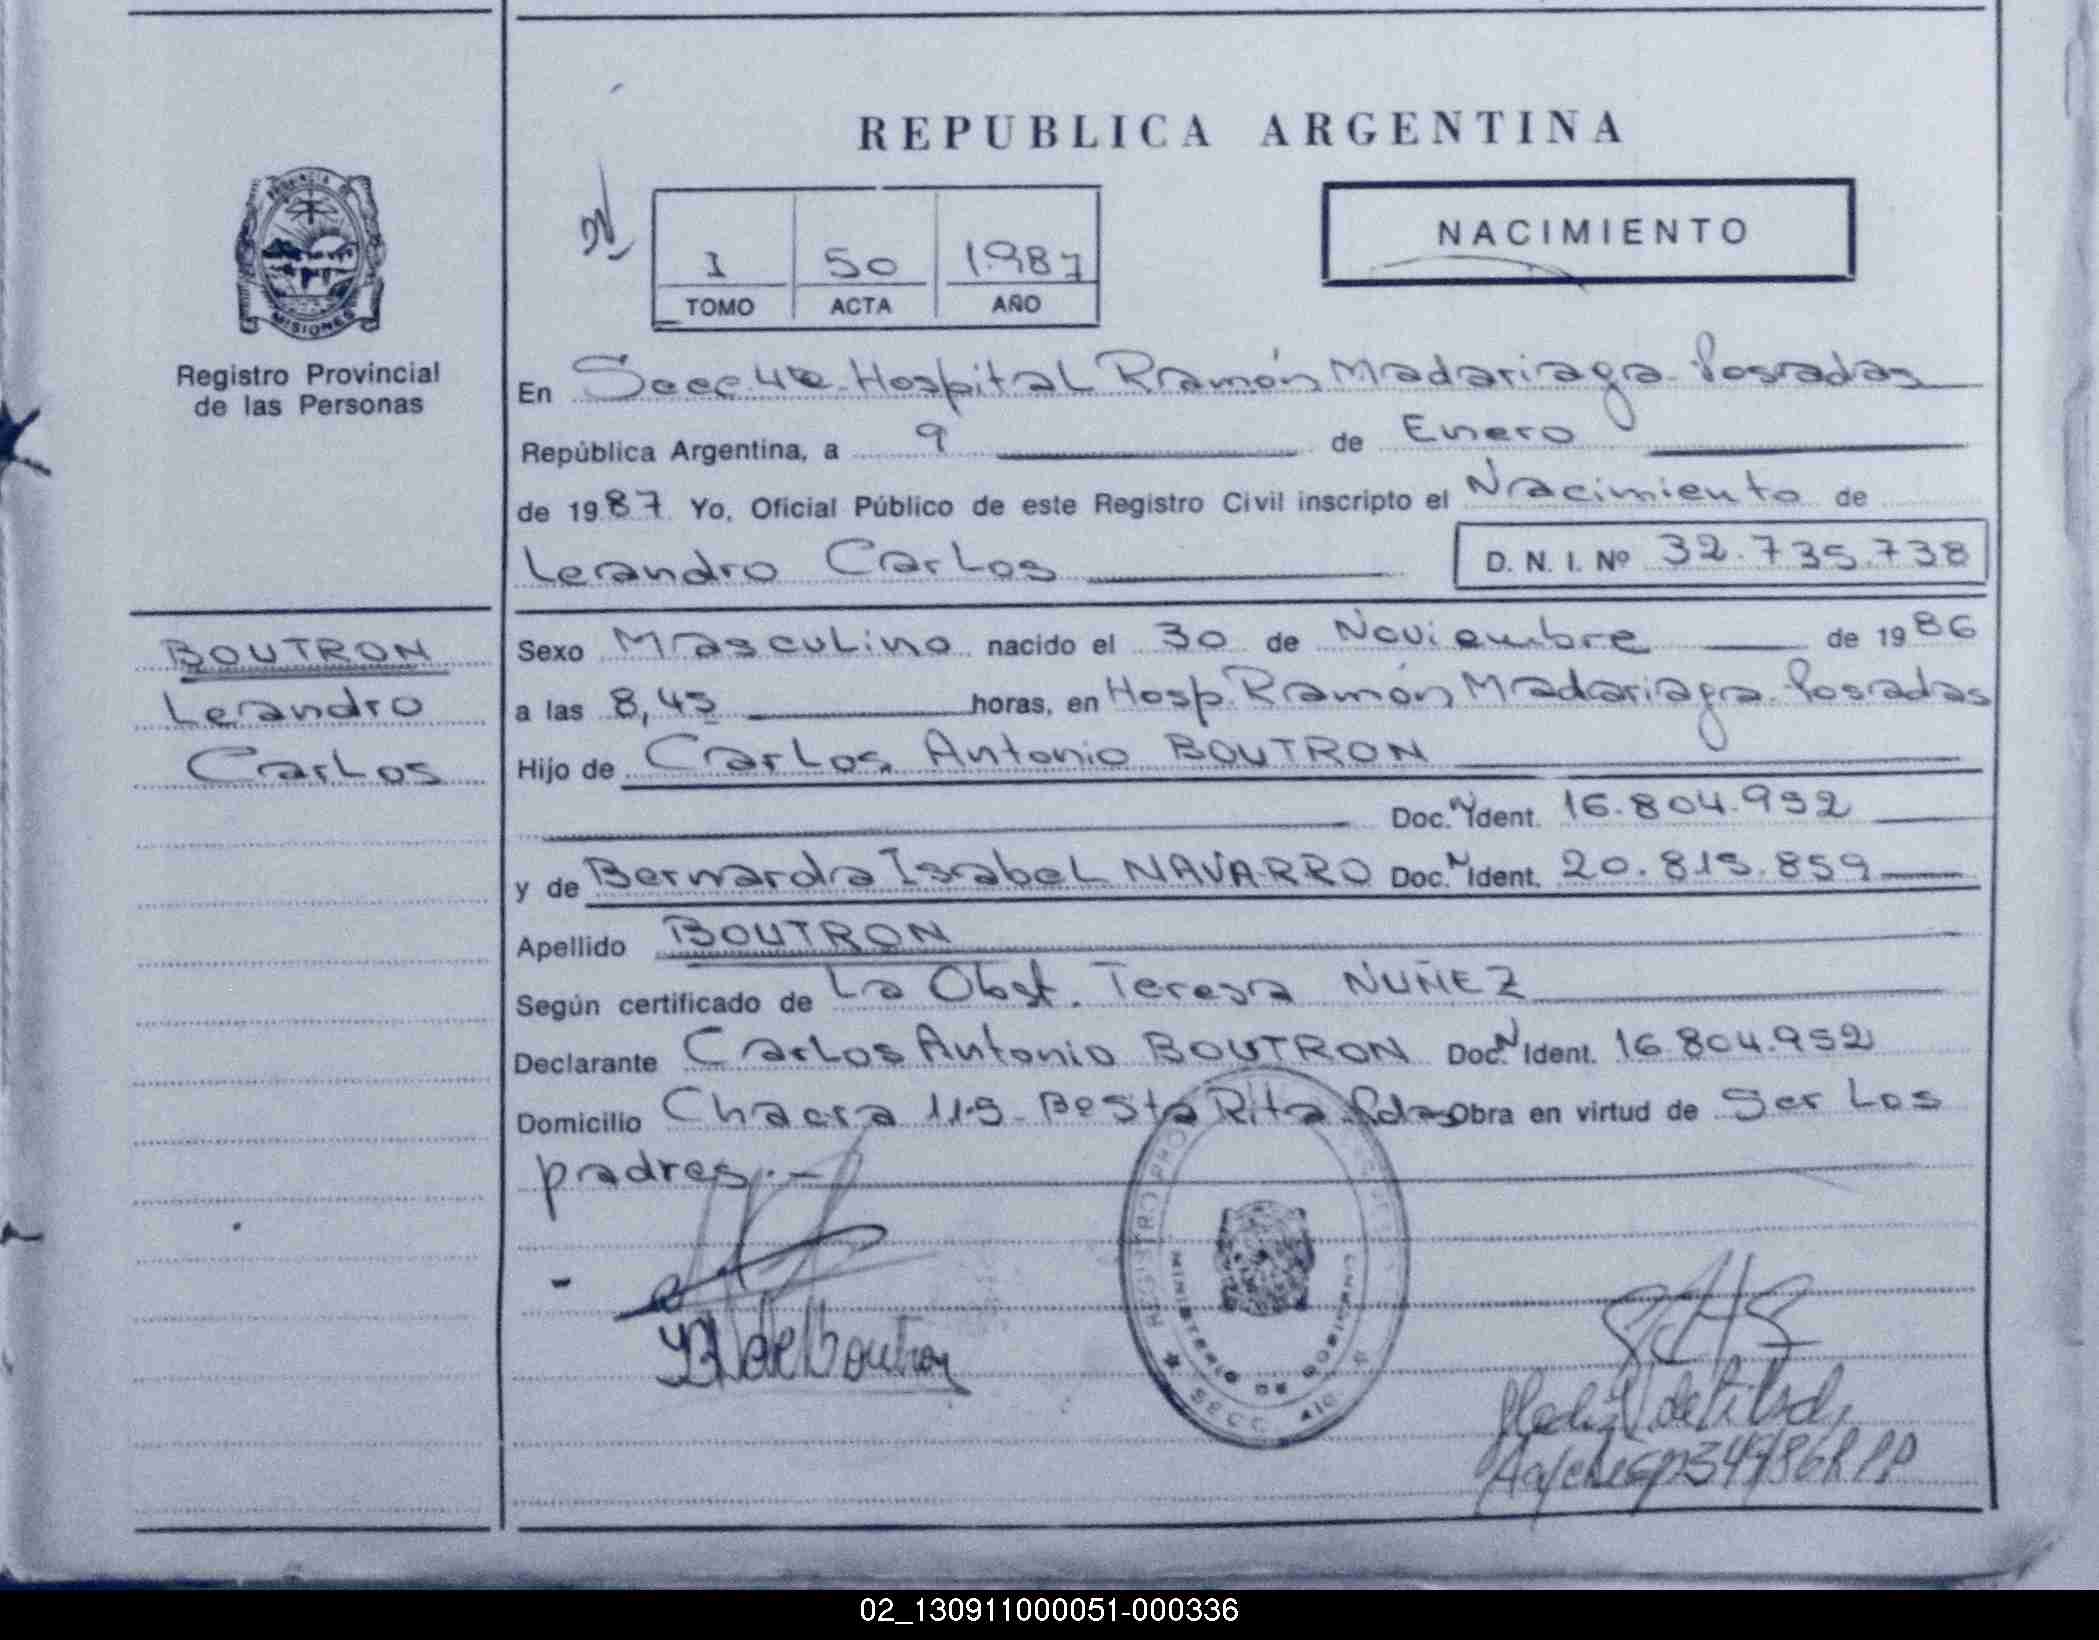 REPUBLICA ARGENTINA
PROVINCIA DE
MISIONES
Registro Provincial
de las Personas
1 50 1.987
TOMO ACTA AÑO
NACIMIENTO
En Secc 4ta Hospital Ramón Madariaga Posadas
República Argentina, a 9 de Enero
de 1987 Yo, Oficial Público de este Registro Civil inscripto el Nacimiento de
Leandro Carlos
D. N. I. Nº 32.735.738
BOUTRON
Leandro
Carlos
Sexo Masculino nacido el 30 de Noviembre de 1986
a las 8,45 horas, en Hosp. Ramón Madariaga Posadas
Hijo de Carlos Antonio BOUTRON
Doc. Ident. 16.804.952
y de Bernarda Isabel NAVARRO Doc. Ident. 20.815.859
Apellido BOUTRON
Según certificado de La Obst. Teresa NUÑEZ
Declarante Carlos Antonio BOUTRON Doc. Ident. 16.804.952
Domicilio Chacra 115 Bº Sta Rita Pdas Obra en virtud de Ser Los
padres.-
MINISTERIO DE GOBIERNO
de Boutron
02_130911000051-000336